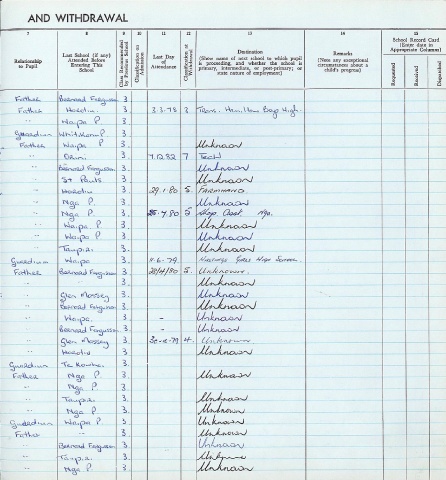 AND WITHDRAWAL
7 8 9 10 11 12 13 14 15
Relationship to Pupil
Last School (if any) Attended Before Entering This School
Class Recommended by Previous School
Classification on Admission
Last Day of Attendance
Classification at Withdrawal
Destination
(Show name of next school to which pupil is proceeding, and whether the school is primary, intermediate, or post-primary; or state nature of employment)
Remarks
(Note any exceptional circumstances about a child's progress)
School Record Card
(Enter date in Appropriate Columns)
Requested Received Dispatched
Father Bernard Ferguson 3
Father 3 3.3.78 3 Trans. Hamilton Boys High.
Waipa P. 3.
Guardian 3.
Father Waipa P 3. Unknown
" 3. 7.12.82 7 Tech
" Bernard Ferguson 3. Unknown
" St Pauls 3. Unknown
" 3. 29.1.80 5. FARMHAND
" Nga P. 3. Unknown
" Nga P. 3. 25.7.80 5 Nga.
" Waipa P 3. Unknown
" Waipa P 3. Unknown
" 3. Unknown
Guardian Waipa 3. 11.6.79 Hastings Girls High School
Father Bernard Ferguson 3. 28/4/80 5. Unknown
" 3. Unknown
" Glen Massey 3. Unknown
" Bernard Ferguson 3. Unknown
" Waipa 3. - Unknown
" Bernard Ferguson 3. - Unknown
" Glen Massey 3. 79 4. Unknown
" 3. Unknown
Guardian Te Kowhai 3.
Father Nga P. 3 Unknown
" Nga P. 3
" 3. Unknown
" Nga P. 3. Unknown
Guardian Waipa P 3. Unknown
Father " 3. Unknown
" Bernard Ferguson 3. Unknown
" 3. Unknown
" Nga P. 3. Unknown